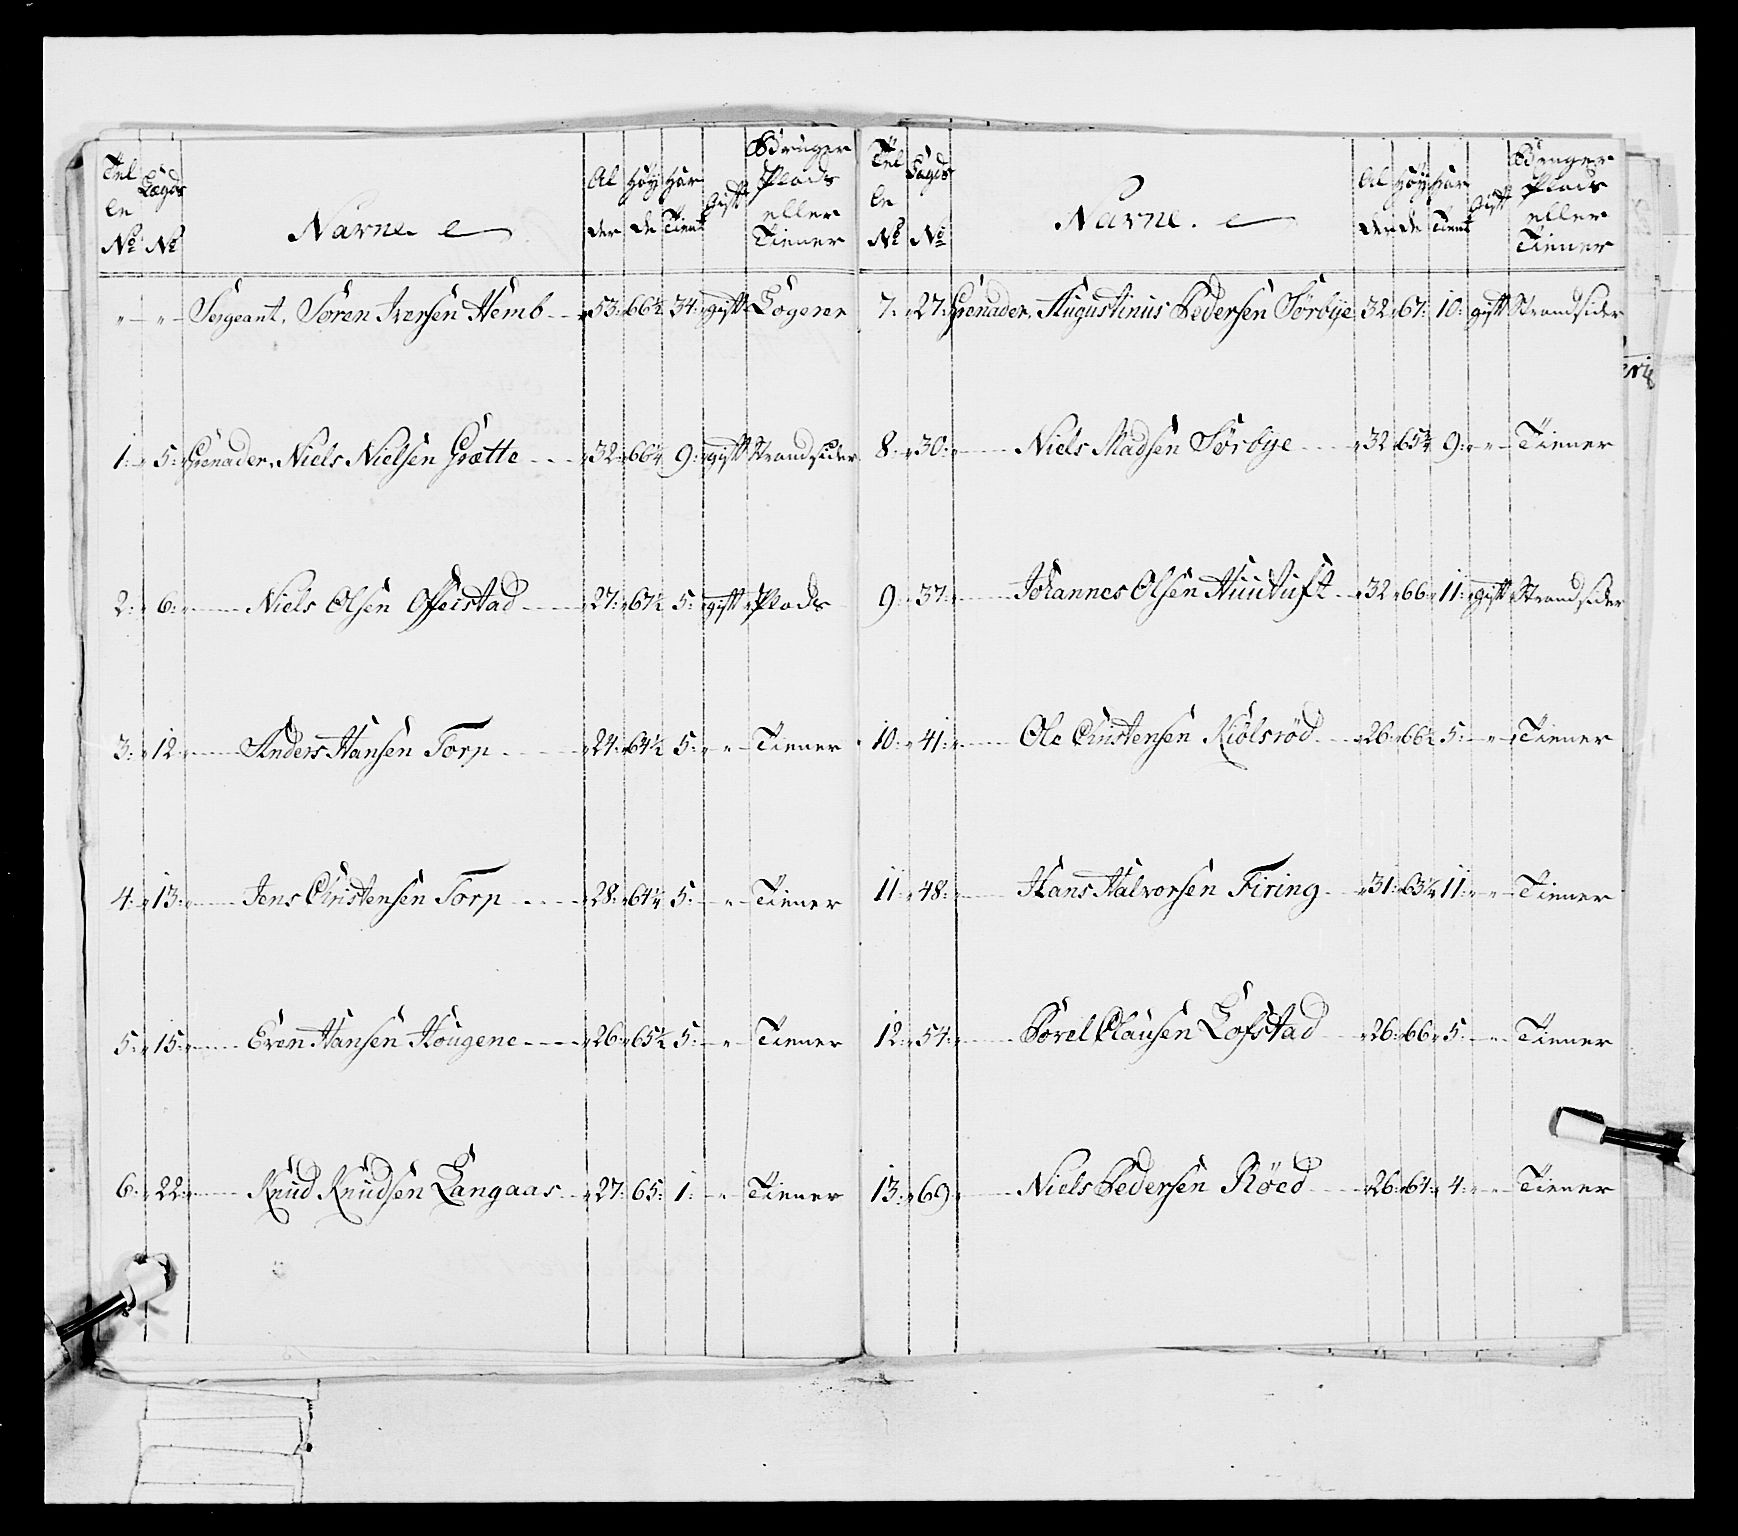 Tel le No Lægds No Navne Al der Høy de Har Tient Gift Bruger Plads eller Tiener
" " Sergeant, Søren Iversen Hemb 53: 66½ 34: gift Logerer
1: 5: Grenader, Niels Nielsen Grætte 32: 66¼ 9: gift Strandsider
2: 6: Niels Olsen Offeistad 27: 67½ 5: gift Plads
3: 12: Anders Hansen Torp 24: 64½ 5: " Tiener
4: 13: Jens Christensen Torp 28: 64¼ 5: " Tiener
5: 15: Even Hansen Hougene 26: 65½ 5: " Tiener
6: 22: Knud Knudsen Langaas 27: 65: 1: " Tiener
Tel le No Lægds No Navne. Al der Høy de Har Tient Gift Bruger Plads eller Tiener
7: 27: Grenader, Augustinus Pedersen Sørbye 32: 67: 10: gift Strandsider
8: 30: Niels Madsen Sørbye 32: 65¼ 9: " Tiener
9: 37: Johannes Olsen 32: 66: 11: gift Strandsider
10: 41: Ole Christensen Kiølsrød 26: 66½ 5: " Tiener
11: 48: Hans Halvorsen Firing 31: 63¼ 11: " Tiener
12: 54: Clausen Lofstad 26: 66: 5: " Tiener
13: 69: Niels Pedersen Røed 26: 64: 4: " Tiener